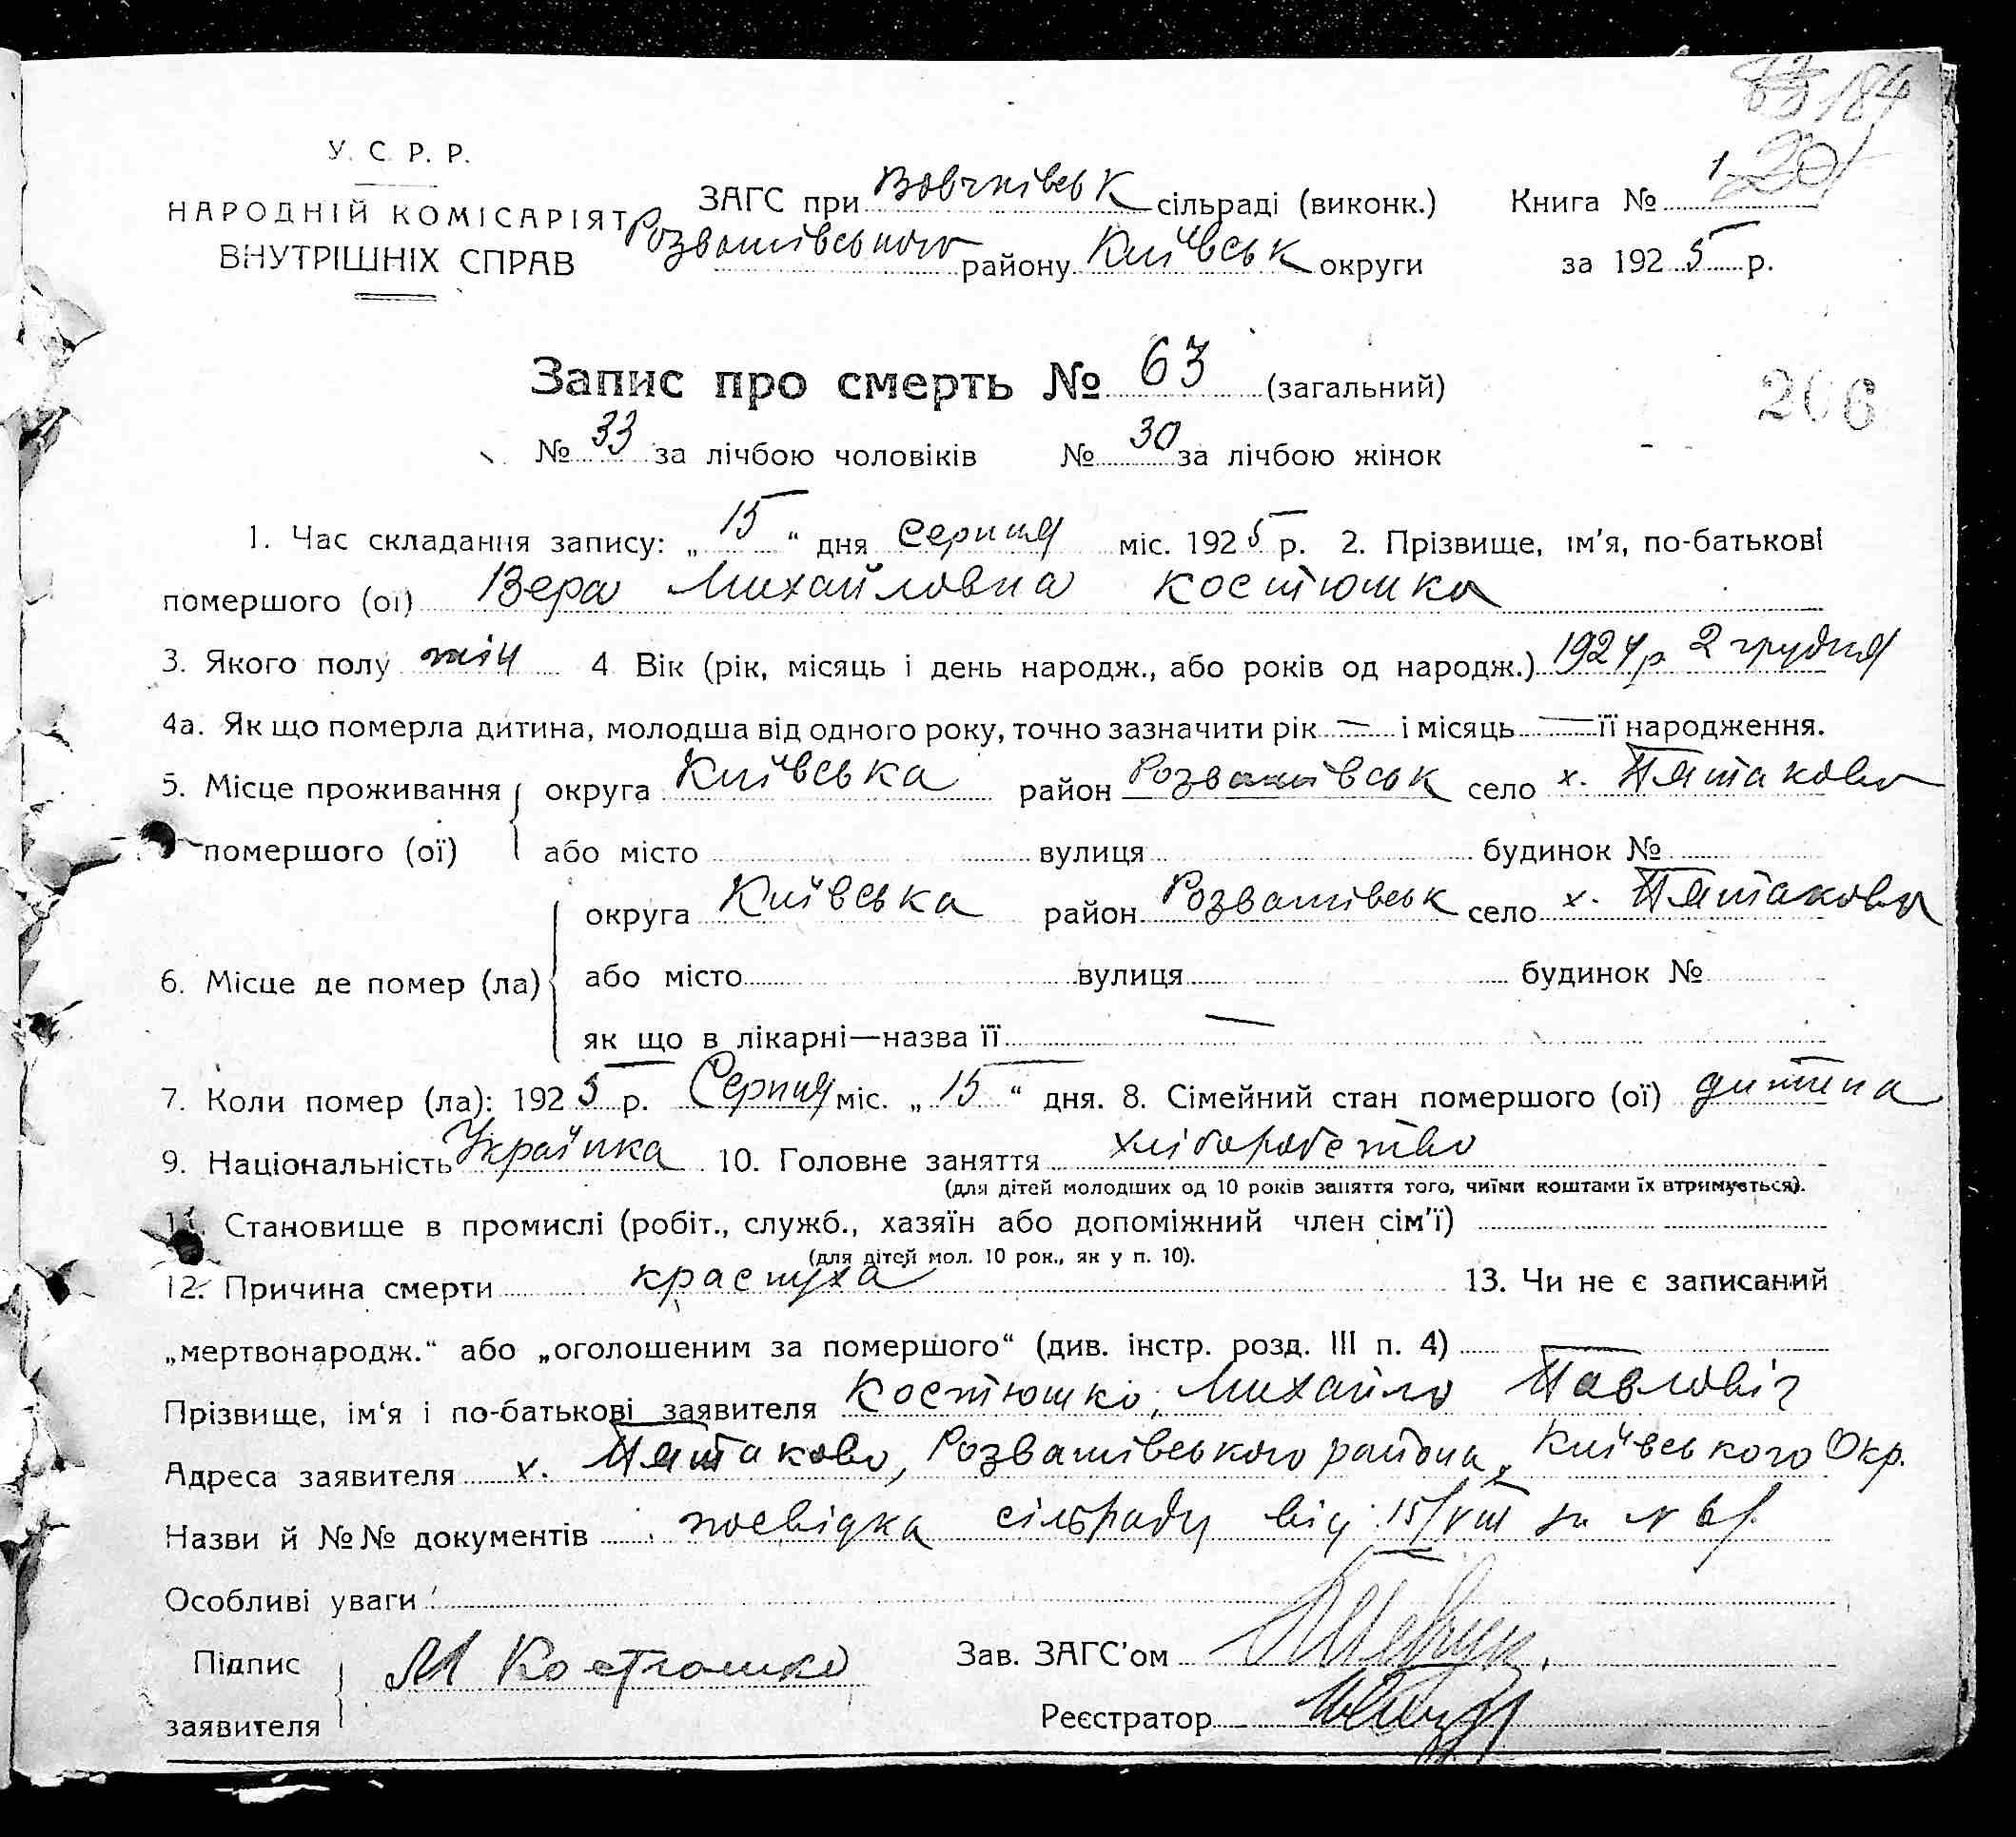 184
У. С. Р. Р.
НАРОДНІЙ КОМІСАРІЯТ
ВНУТРІШНІХ СПРАВ
ЗАГС при Вовчківськ сільраді (виконк.)
Розважівського району Київськ округи
Книга № 1
за 1925 р.
Запис про смерть № 63 (загальний)
206
№ 33 за лічбою чоловіків № 30 за лічбою жінок
1. Час складання запису: „15“ дня Серпня міс. 1925 р. 2. Прізвище, ім'я, по-батькові
помершого (ої) Вера Михайловна Костюшка
3. Якого полу жін 4 Вік (рік, місяць і день народж., або років од народж.) 1924 р 2 грудня
4а. Як що померла дитина, молодша від одного року, точно зазначити рік — і місяць — її народження.
5. Місце проживання округа Київська район Розважівськ село х. Пятаково
помершого (ої) або місто вулиця будинок №
округа Київська район Розважівськ село х. Пятакова
6. Місце де помер (ла) або місто вулиця будинок №
як що в лікарні—назва її —
7. Коли помер (ла): 1925 р. Серпня міс. „15“ дня. 8. Сімейний стан помершого (ої) дитина
9. Національність Українка 10. Головне заняття хліборобство
(для дітей молодших од 10 років заняття того, чиїми коштами їх втримується).
11. Становище в промислі (робіт., служб., хазяїн або допоміжний член сім'ї)
(для дітей мол. 10 рок., як у п. 10).
12. Причина смерти краснуха 13. Чи не є записаний
„мертвонародж.“ або „оголошеним за помершого“ (див. інстр. розд. III п. 4)
Прізвище, ім'я і по-батькові заявителя Костюшко, Михайло Павловіч
Адреса заявителя х. Пятаково, Розважівського района, Київського Окр.
Назви й №№ документів посвідка сільради від 15/VIII за №
Особливі уваги
Підпис
заявителя М Костюшко
Зав. ЗАГС'ом
Реєстратор